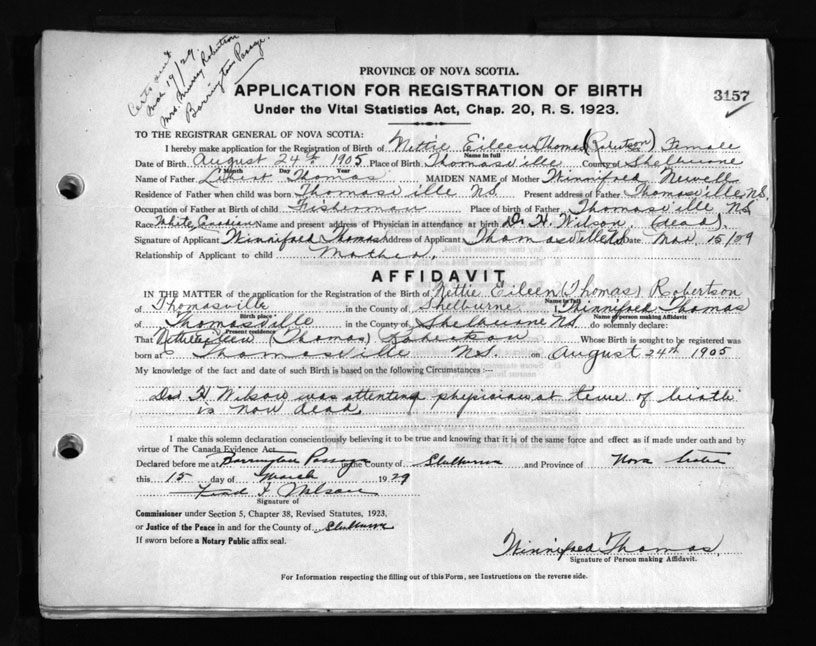 Certs sent
Mar 19/29.
Mrs. Murray Robertson
Barrington Passage.
PROVINCE OF NOVA SCOTIA.
APPLICATION FOR REGISTRATION OF BIRTH
3157
Under the Vital Statistics Act, Chap. 20, R. S. 1923.
TO THE REGISTRAR GENERAL OF NOVA SCOTIA:
I hereby make application for the Registration of Birth of Nettie Eileen Thomas (Robertson) Female
Name in full
Date of Birth August 24th 1905 Place of Birth Thomasville County of Shelburne
Month Day Year
Name of Father Thomas MAIDEN NAME of Mother Winnifred Newell
Residence of Father when child was born Thomasville N.S. Present address of Father Thomasville N.S.
Occupation of Father at Birth of child Fisherman Place of birth of Father Thomasville N.S.
Race White Canadian Name and present address of Physician in attendance at birth Dr. H. Wilson, (dead)
Signature of Applicant Winnifred Thomas Address of Applicant Thomasville Date Mar 15/29
Relationship of Applicant to child Mother.
AFFIDAVIT
IN THE MATTER of the application for the Registration of the Birth of Nettie Eileen (Thomas) Robertson
Name in full
of Thomasville in the County of Shelburne Winnifred Thomas
Birth place Name of person making Affidavit
of Thomasville in the County of Shelburne N.S. do solemnly declare:
Present residence
That Nettie Eileen (Thomas) Robertson Whose Birth is sought to be registered was
born at Thomasville N.S. on August 24th 1905
My knowledge of the fact and date of such Birth is based on the following Circumstances :—
H. Wilson was attending physician at time of birth
is now dead.
I make this solemn declaration conscientiously believing it to be true and knowing that it is of the same force and effect as if made under oath and by
virtue of The Canada Evidence Act
Declared before me at Barrington Passage in the County of Shelburne and Province of Nova Scotia
this 15 day of March 1929
Signature of
Commissioner under Section 5, Chapter 38, Revised Statutes, 1923,
or Justice of the Peace in and for the County of Shelburne
If sworn before a Notary Public affix seal.
Winnifred Thomas,
Signature of Person making Affidavit.
For Information respecting the filling out of this Form, see Instructions on the reverse side.